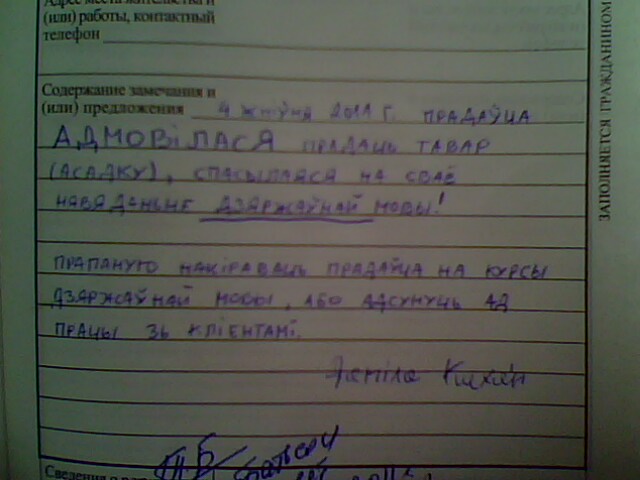 Адрес места жительства и
(или) работы, контактный
телефон
Содержание замечания и
(или) предложения 4 жніўня 2011 г. прадаўца
АДМОВІЛАСЯ прадаць тавар
(асадку), спасылаяся на сваё
навяданьне дзяржаўнай мовы!
прапаную накіраваць прадаўца на курсы
дзяржаўнай мовы, або адсунуць ад
працы зь кліентамі.
ЗАПОЛНЯЕТСЯ ГРАЖДАНИНОМ
Сведения о